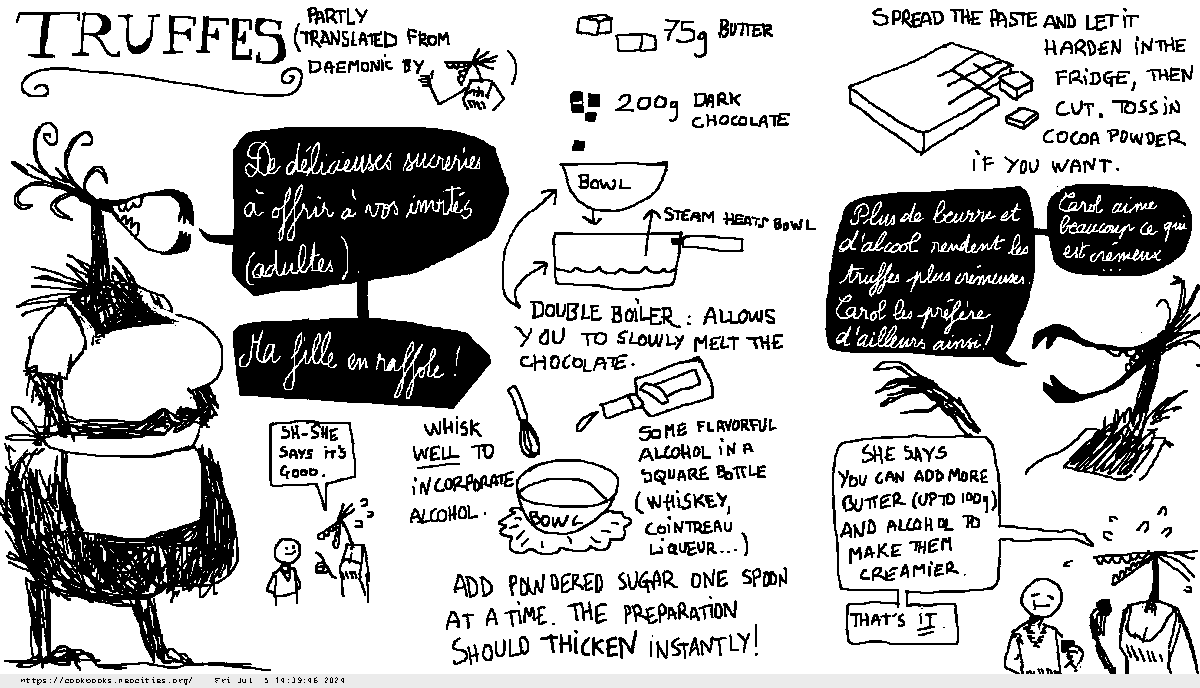 TRUFFES
(PARTLY
TRANSLATED FROM
DAEMONIC BY
)
De délicieuses sucreries
à offrir à vos invités
(adultes)
Ma fille en raffole !
SH-SHE
SAYS IT'S
GOOD.
75g BUTTER
200g DARK
CHOCOLATE
BOWL
STEAM HEATS BOWL
DOUBLE BOILER: ALLOWS
YOU TO SLOWLY MELT THE
CHOCOLATE.
WHISK
WELL TO
INCORPORATE
ALCOHOL.
BOWL
SOME FLAVORFUL
ALCOHOL IN A
SQUARE BOTTLE
(WHISKEY,
COINTREAU
LIQUEUR...)
ADD POWDERED SUGAR ONE SPOON
AT A TIME. THE PREPARATION
SHOULD THICKEN INSTANTLY!
SPREAD THE PASTE AND LET IT
HARDEN IN THE
FRIDGE, THEN
CUT. TOSS IN
COCOA POWDER
IF YOU WANT.
Plus de beurre et
d'alcool rendent les
truffes plus crémeuses
Carol les préfère
d'ailleurs ainsi!
Carol aime
beaucoup ce qui
est crémeux
...
SHE SAYS
YOU CAN ADD MORE
BUTTER (UP TO 100g)
AND ALCOHOL TO
MAKE THEM
CREAMIER.
THAT'S IT.
https://cookbooks.neocities.org/ Fri Jul 5 14:39:46 2024